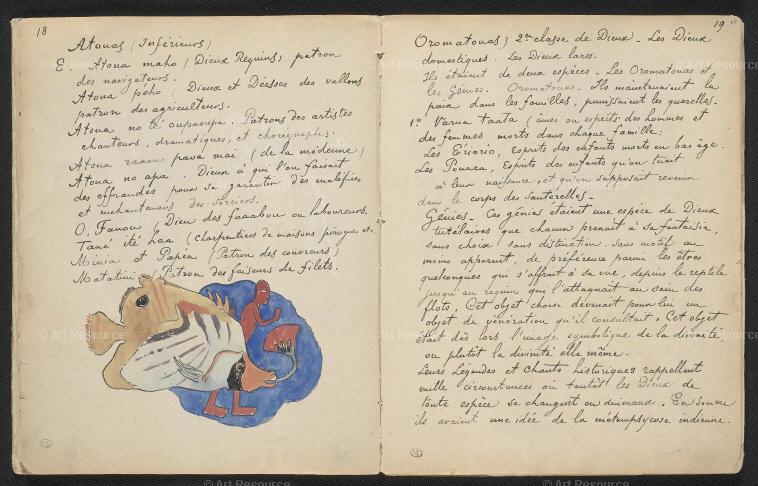 18
Atouas (Inférieurs)
E. Atoua maho (Dieux Requins) patron
des navigateurs.
Atoua peho (Dieux et Déesses des vallons
patron des agriculteurs.
Atoua no te oupaoupa. Patrons des artistes
chanteurs, dramatiques, et chorégraphes.
Atoua raaou pava mai (de la médecine)
Atoua no apa. Dieux à qui l'on faisait
des offrandes pour se garantir des maléfices
et enchantements des sorciers.
O. Fanou / Dieu des faaabou ou laboureurs.
Tané ité haa (Charpentiers de maisons pirogues etc.
Minia et Papea (Patron des couvreurs)
Matatini / Patron des faiseurs de filets.
19
Oromatouas) 2me classe de Dieux. Les Dieux
domestiques. Les Dieux lares.
Ils étaient de deux espèces. Les Oromatouas et
les Génies. Oromatouas. Ils maintenaient la
paix dans les familles, punissaient les querelles.
1° Varua taata (âmes ou esprits des hommes et
des femmes morts dans chaque famille.
Les Eriorio, Esprits des enfants morts en bas âge.
Les Pouara, Esprits des enfants qu'on tuait
à leur naissance, et qu'on supposait revenir
dans le corps des sauterelles.
Génies. Ces génies étaient une espèce de Dieux
tutélaires que chacun prenait à sa fantaisie,
sans choix sans distinction, sans motif au
moins apparent, de préférence parmi les êtres
quelconques qui s'offrait à sa vue, depuis le reptile
jusqu'au requin qui l'attaquait au sein des
flots. Cet objet choisi devenait pour lui un
objet de vénération qu'il consultait. Cet objet
était dès lors l'image symbolique de la divinité,
ou plutôt la divinité elle même.
Leurs Légendes et Chants historiques rappellent
mille circonstances où tantôt les Dieux de
toute espèce se changent en animaux. En somme
ils avaient une idée de la métempsycose indienne.
© Art Resource